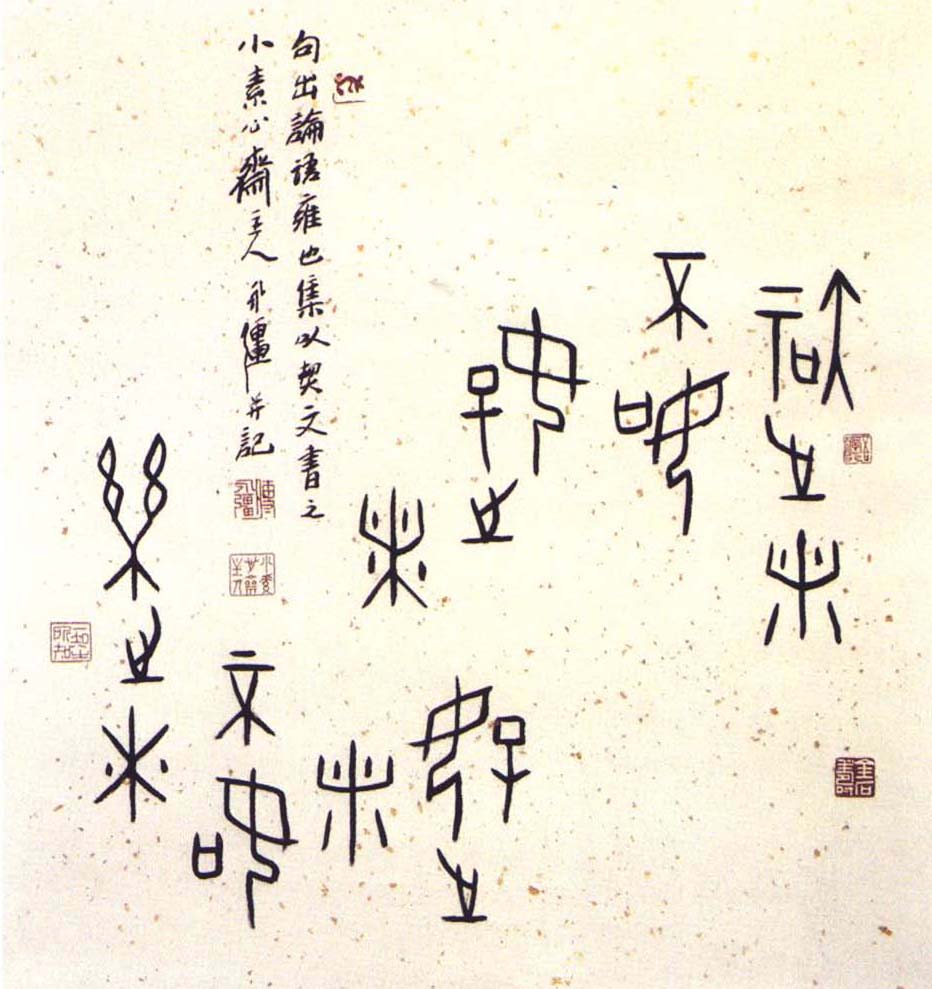 知之者
不如
好之
者
好之
者
不如
樂之者
句出論語雍也集以契文書之
小素心齋主人永彊并記
傅永彊